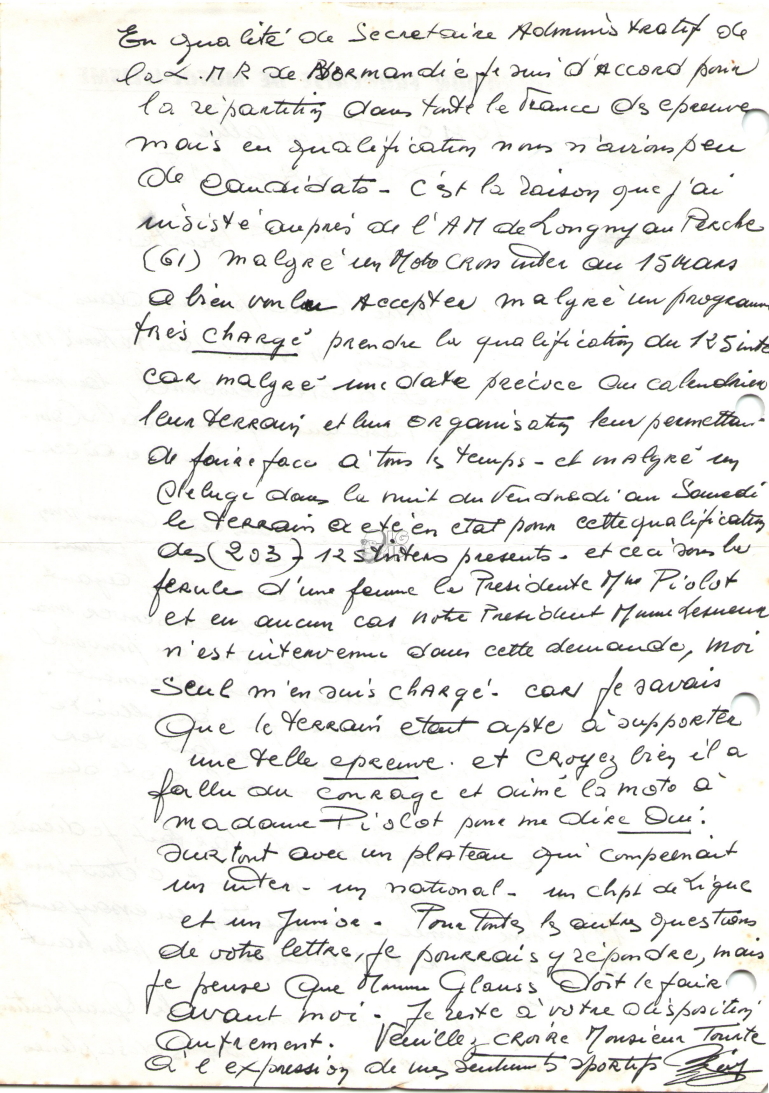 En qualité de Secretaire Administratif de
la L.M.R de Normandie je suis d'Accord pour
la répartition dans toute la France des epreuves
mais en qualification nous n'avions peu
de candidats - c'est la raison que j'ai
insisté auprès de l'AM de Longny au Perche
(61) malgré un Moto Cross inter au 15 mars
a bien voulu Accepter malgré un programm
très chargé prendre la qualification du 125 inte
car malgré une date précoce au calendrier
leur terrain et leur organisation leur permettan
de faire face à tous les temps - et malgré un
deluge dans la nuit du Vendredi au Samedi
le terrain a été en etat pour cette qualification
des (203) - 125 Inters presents - et ceci sous la
ferule d'une femme la Presidente Mme Piolot
et en aucun cas notre President Lesueur
n'est intervenu dans cette demande, moi
seul m'en suis chargé - car je savais
que le terrain etait apte à supporter
une telle epreuve. et croyez bien il a
fallu du courage et aimé la moto à
madame Piolot pour me dire Oui.
surtout avec un plateau qui comprenait
un inter - un national - un chpt de Ligue
et un Junior - Pour toutes les autres questions
de votre lettre, je pourrais y répondre, mais
je pense que Glauss doit le faire
avant moi - Je reste à votre disposition
autrement. Veuillez croire Monsieur Tourte
à l'expression de mes sentiments sportifs